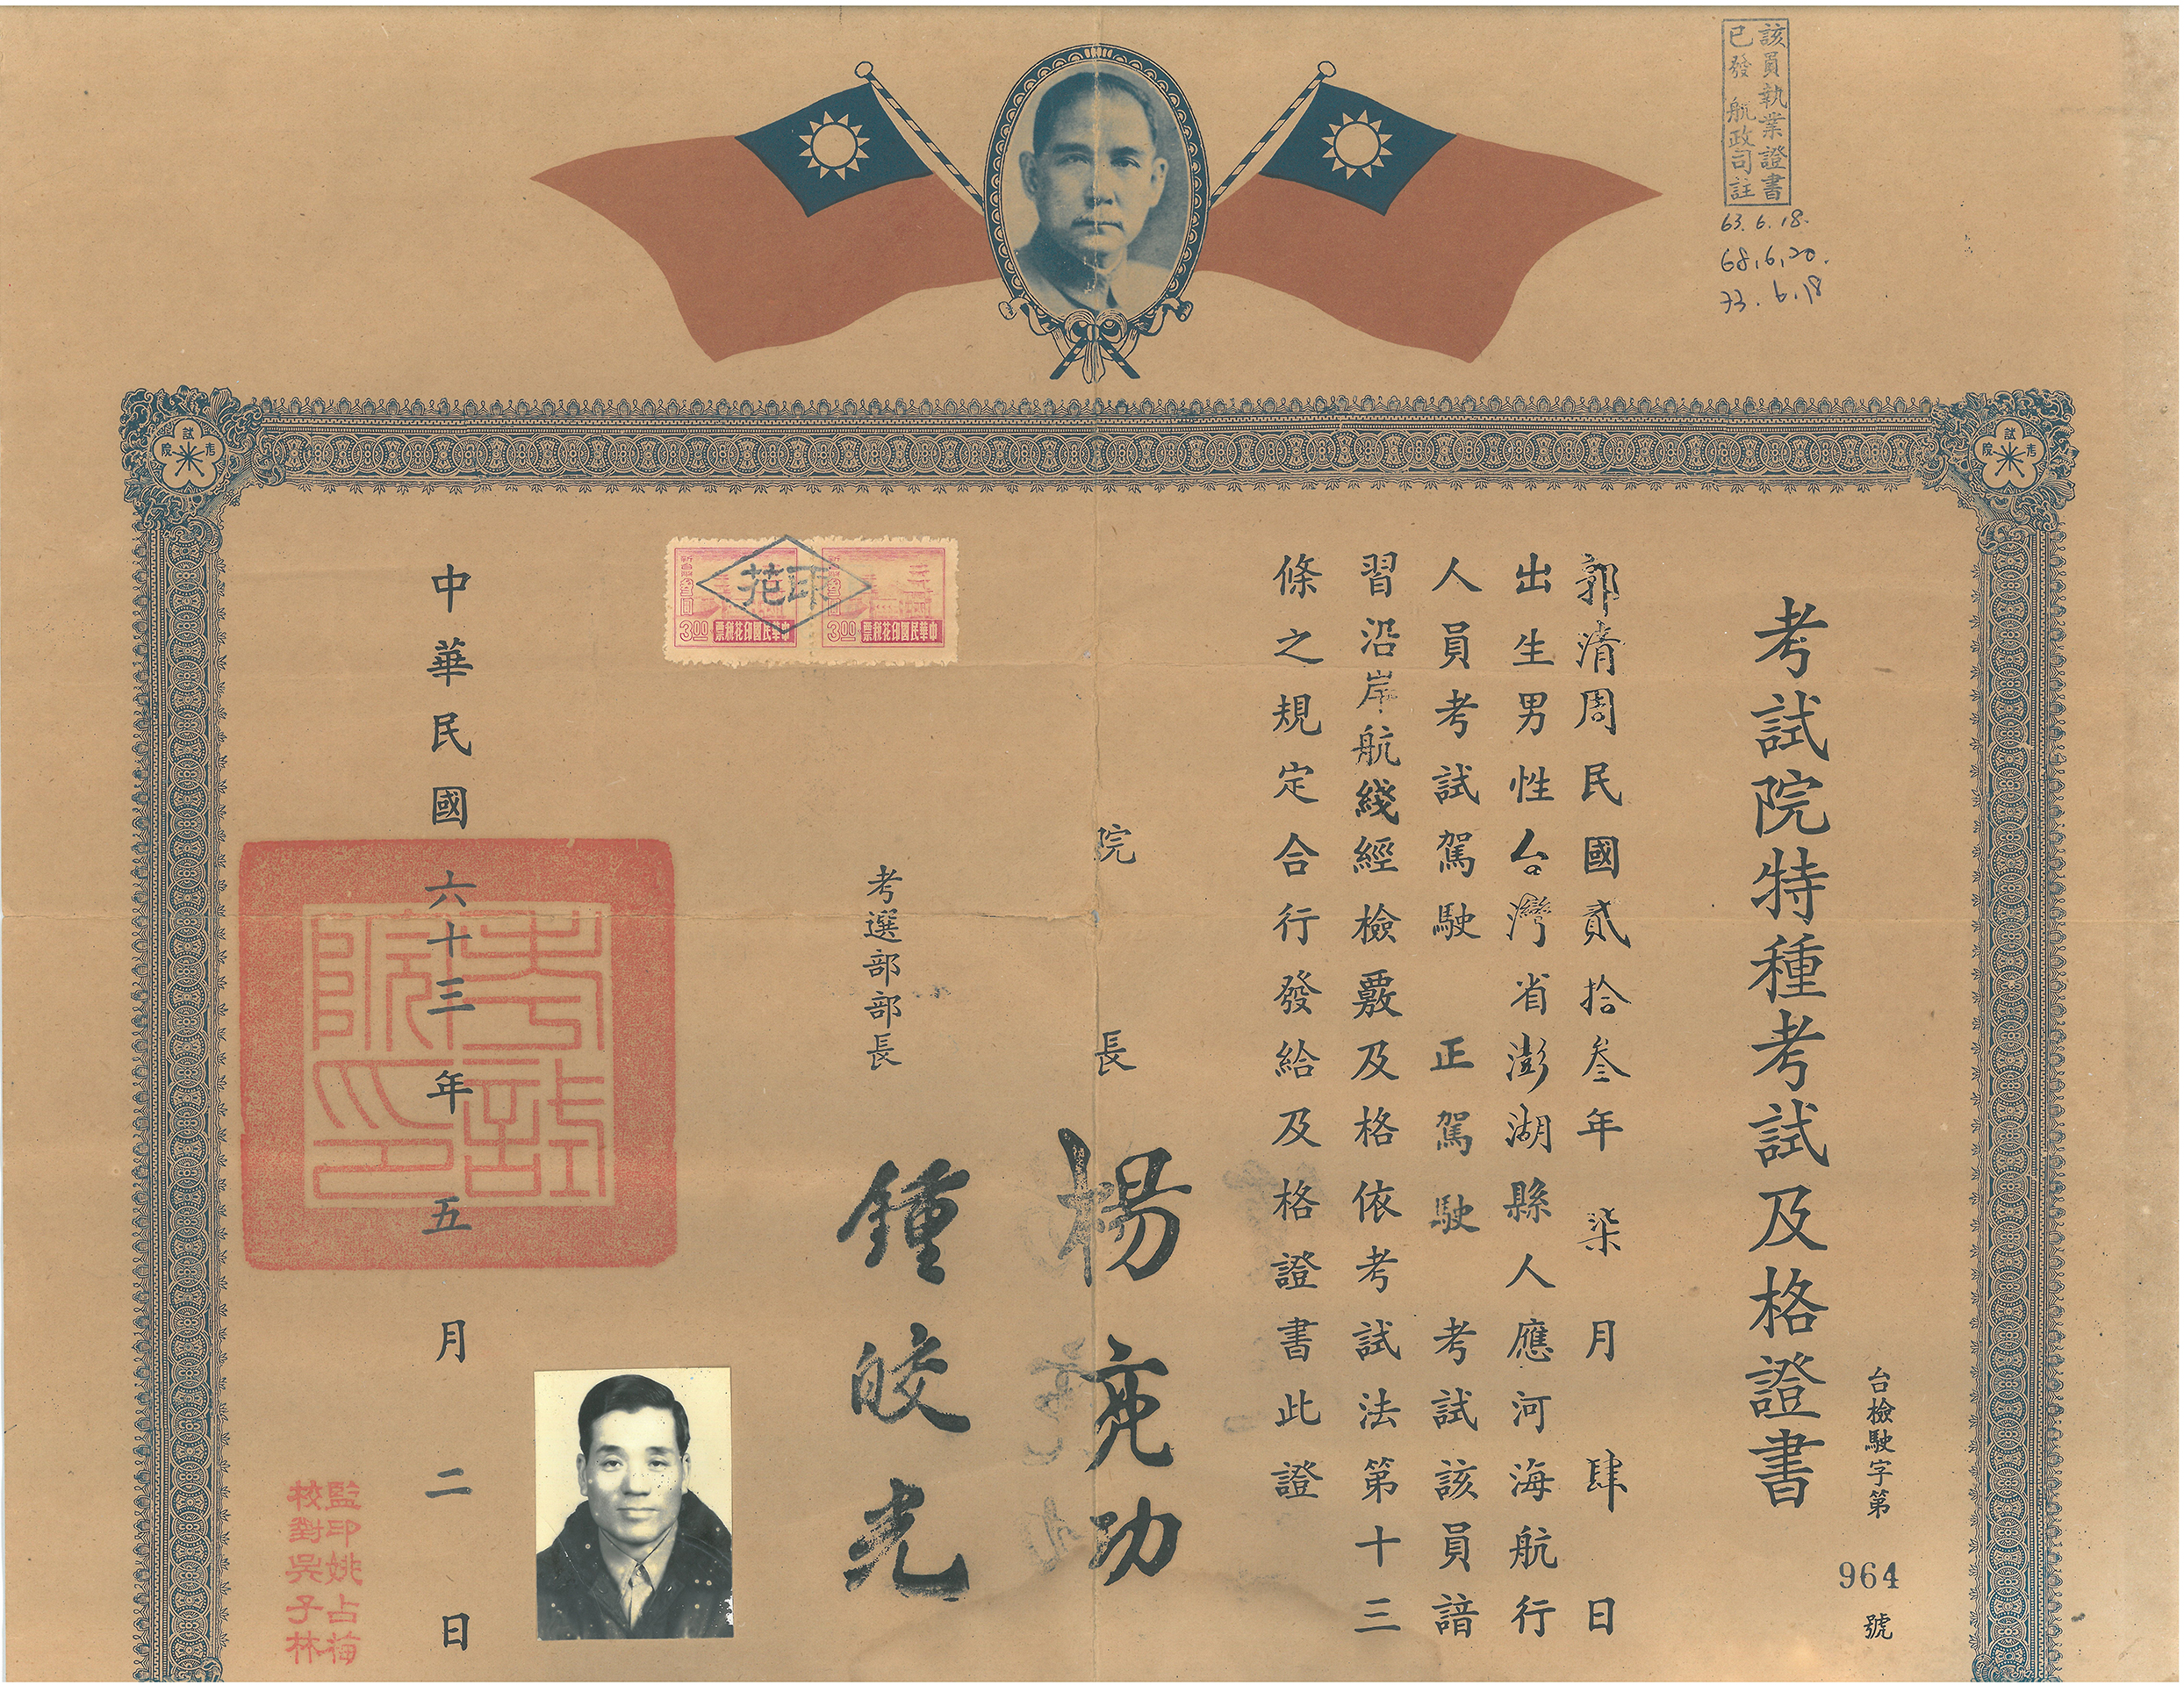 該員執業證書
已發 航政司註
63.6.18.
68.6.20.
73.6.18
考試院
考試院
考試院特種考試及格證書
台檢駛字第964號
郭清周民國貳拾叁年柒月肆日
出生男性台灣省澎湖縣人應河海航行
人員考試駕駛 正駕駛 考試該員諳
習沿岸航綫經檢覈及格依考試法第十三
條之規定合行發給及格證書此證
院長 楊亮功
考選部部長 鍾皎光
印花
中華民國印花稅票
3.00
中華民國印花稅票
3.00
中華民國六十三年五月二日
考試院印
監印姚占梅
校對吳子林